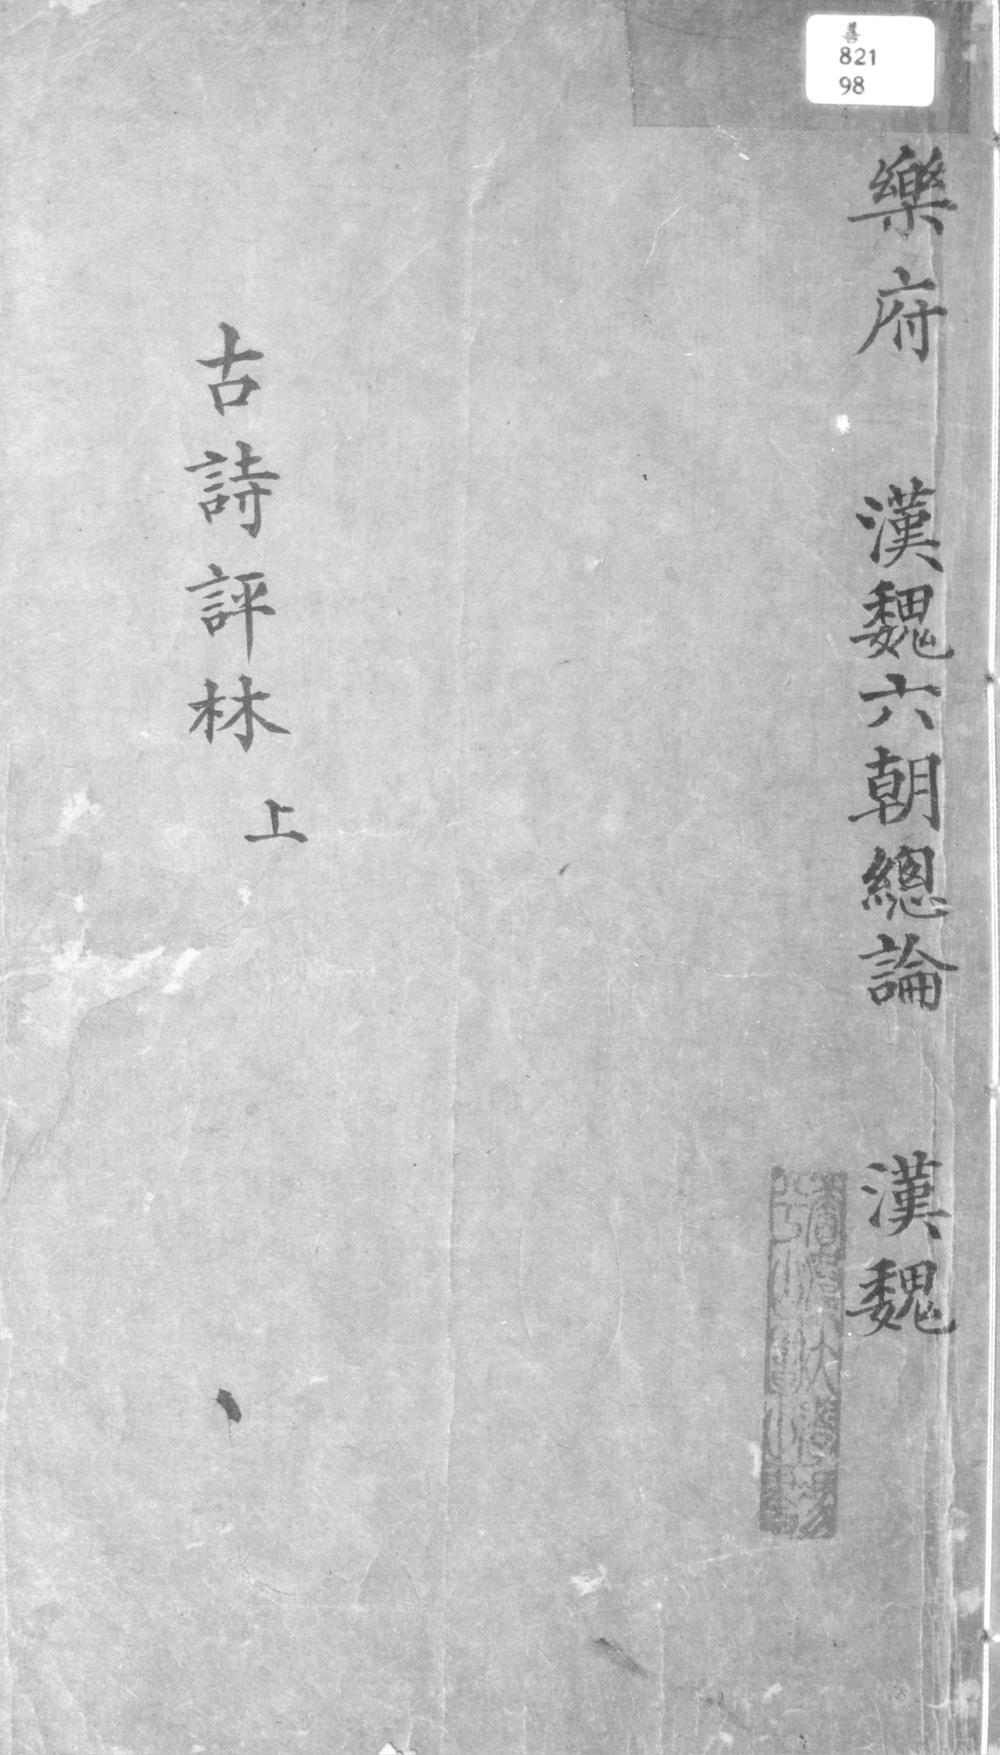 善
821
98
樂府 漢魏六朝總論 漢魏
古詩評林 上